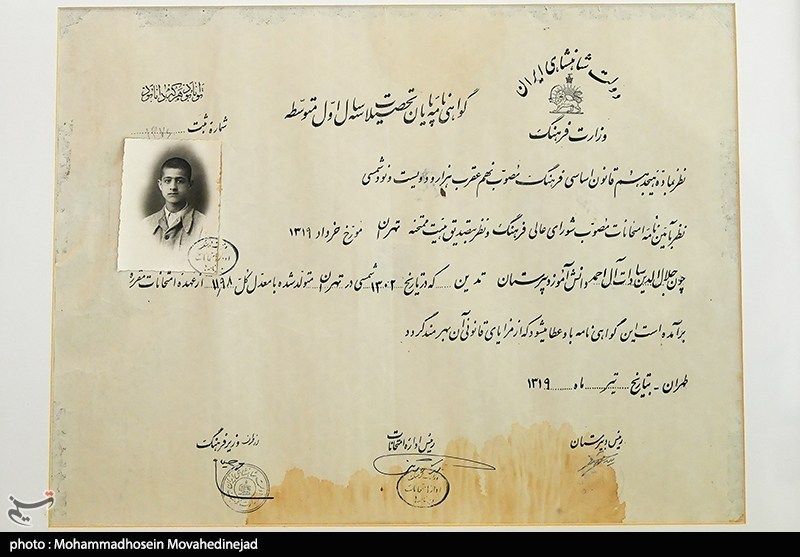 دولت شاهنشاهی ایران
وزارت فرهنگ
توانا بود هر که دانا بود
شمارهٔ ثبت
گواهی نامه پایان تحصیلات سه ساله اول متوسطه
نظر بمادهٔ هیجدهم قانون اساسی فرهنگ مصوب نهم عقرب هزار و دویست و نود شمسی
نظر بآئین نامه امتحانات مصوب شورای عالی فرهنگ و نظر بتصدیق هیئت ممتحنه تهران مورخ خرداد ۱۳۱۹
چون جلال الدین سادات آل احمد دانش آموز دبیرستان تمدین که در تاریخ ۱۳۰۲ شمسی در تهران متولد شده با معدل کل ۱۱/۹۸ از عهده امتحانات مقرره
برآمده است این گواهی نامه باو عطا میشود که از مزایای قانونی آن بهره مند گردد
طهران - بتاریخ تیر ماه ۱۳۱۹
رئیس دبیرستان
رئیس اداره امتحانات
از طرف وزیر فرهنگ
تسنیم
photo : Mohammadhosein Movahedinejad